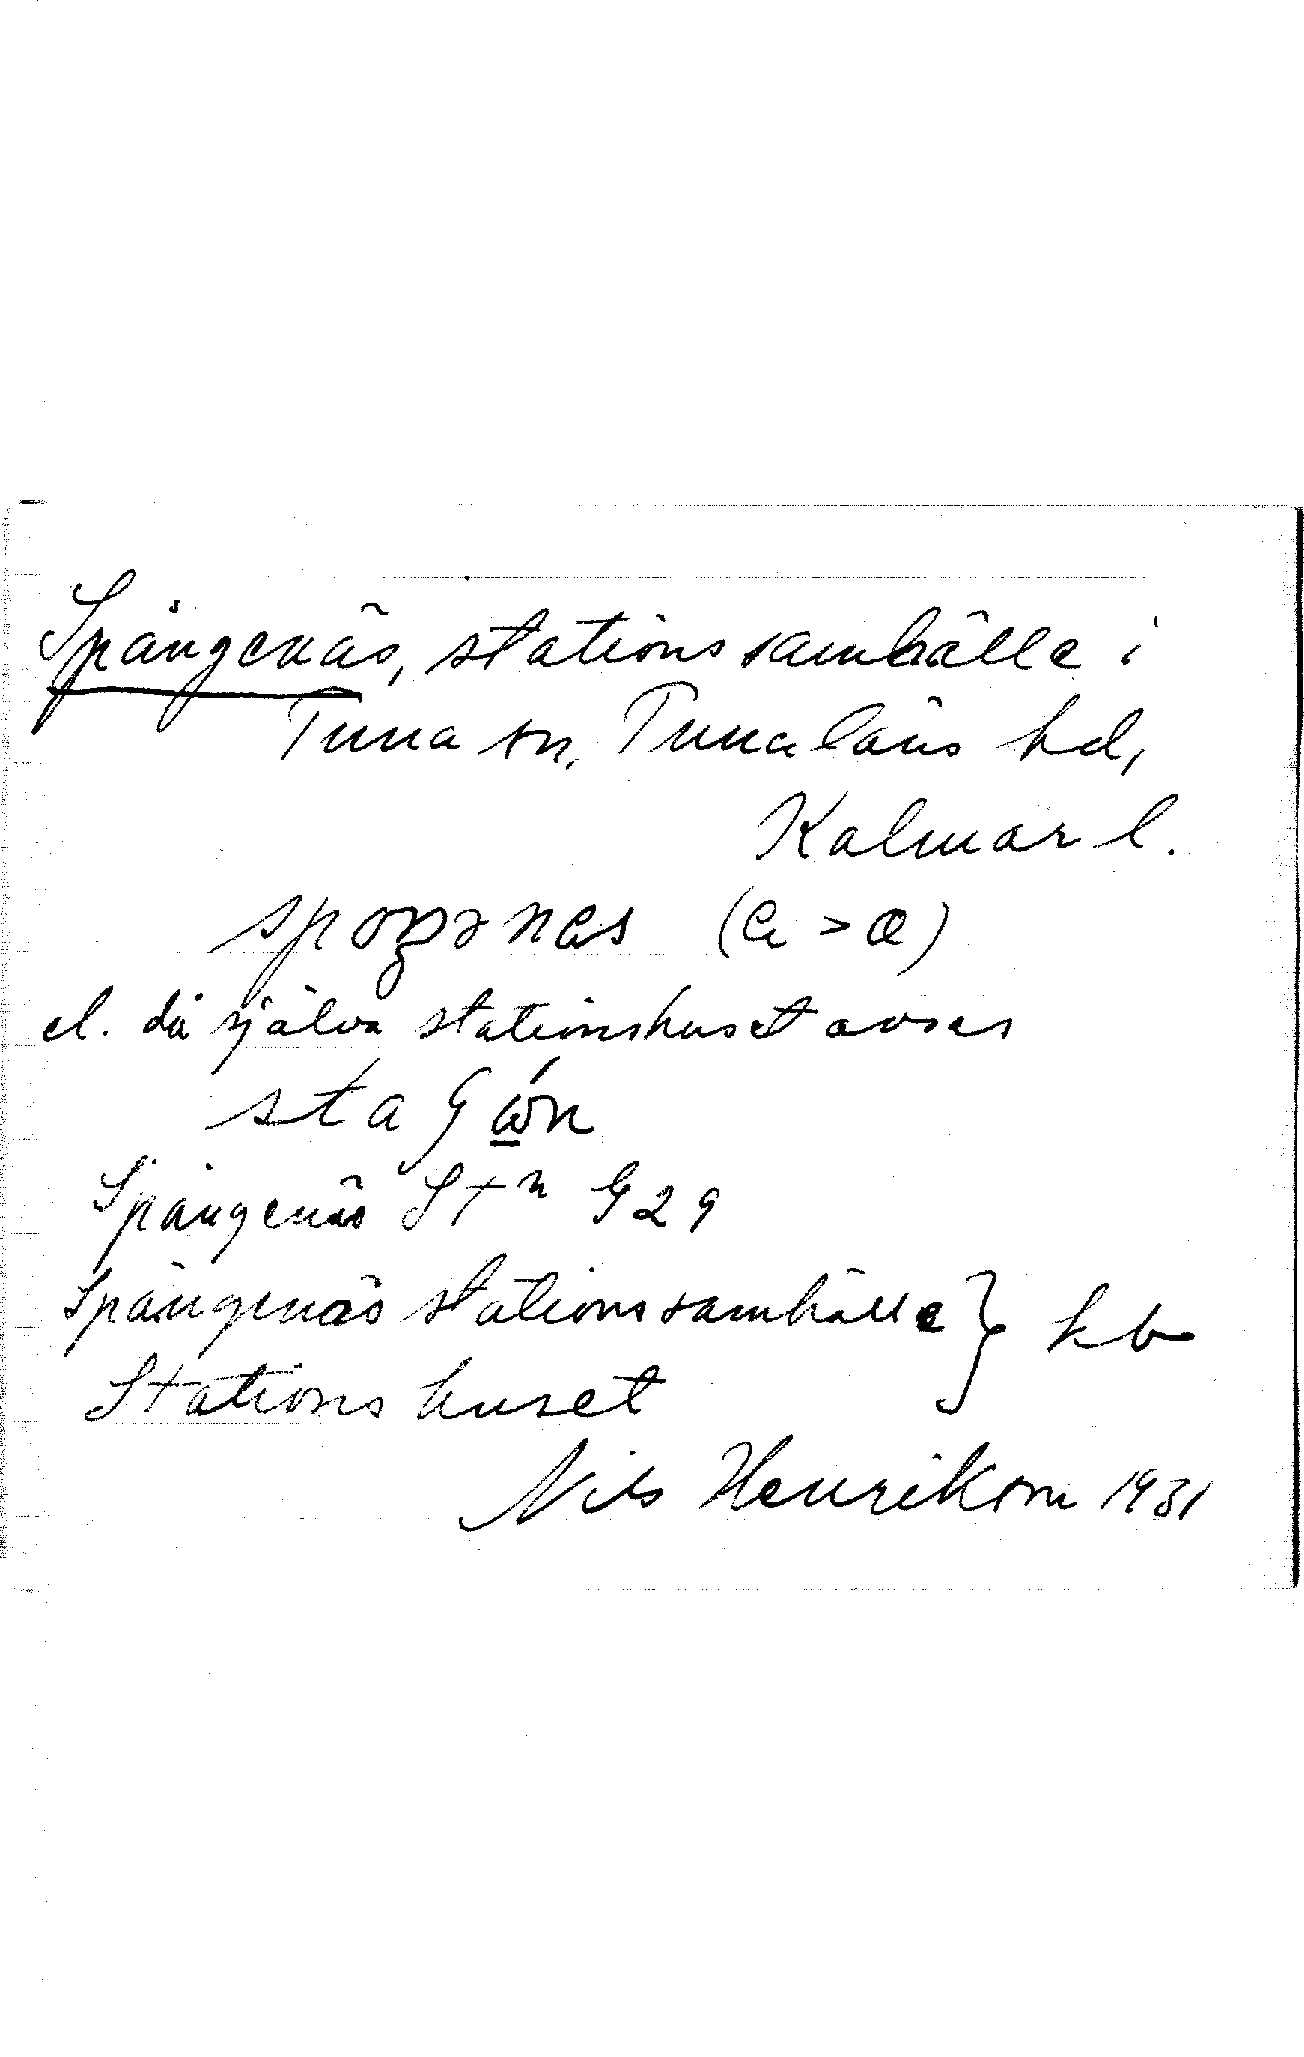 Spångenäs, stationssamhälle i
Tuna sn, Tunaläns hd,
Kalmar l.
el. då själva stationshuset avses
Spångenäs Stn G 29
Spångenäs stationssamhälle } kb
Stationshuset
Nils Henrikson 1931